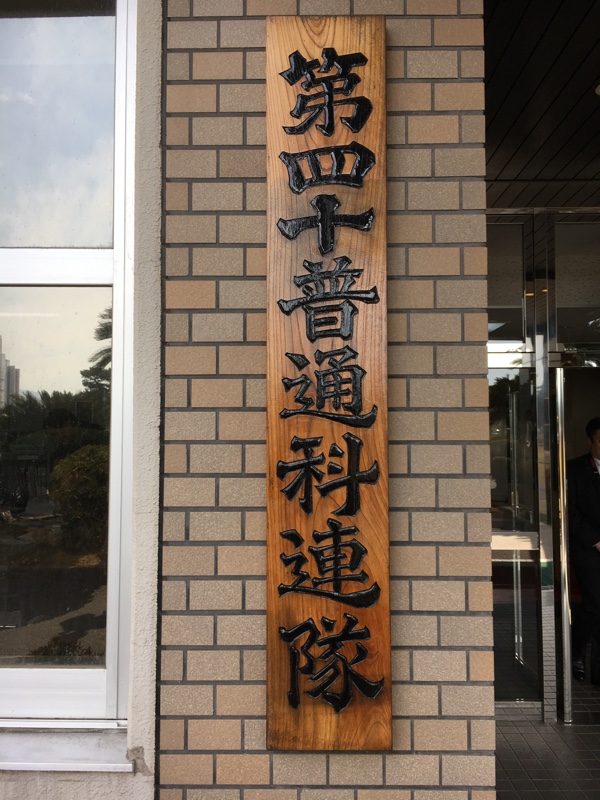 第四十普通科連隊